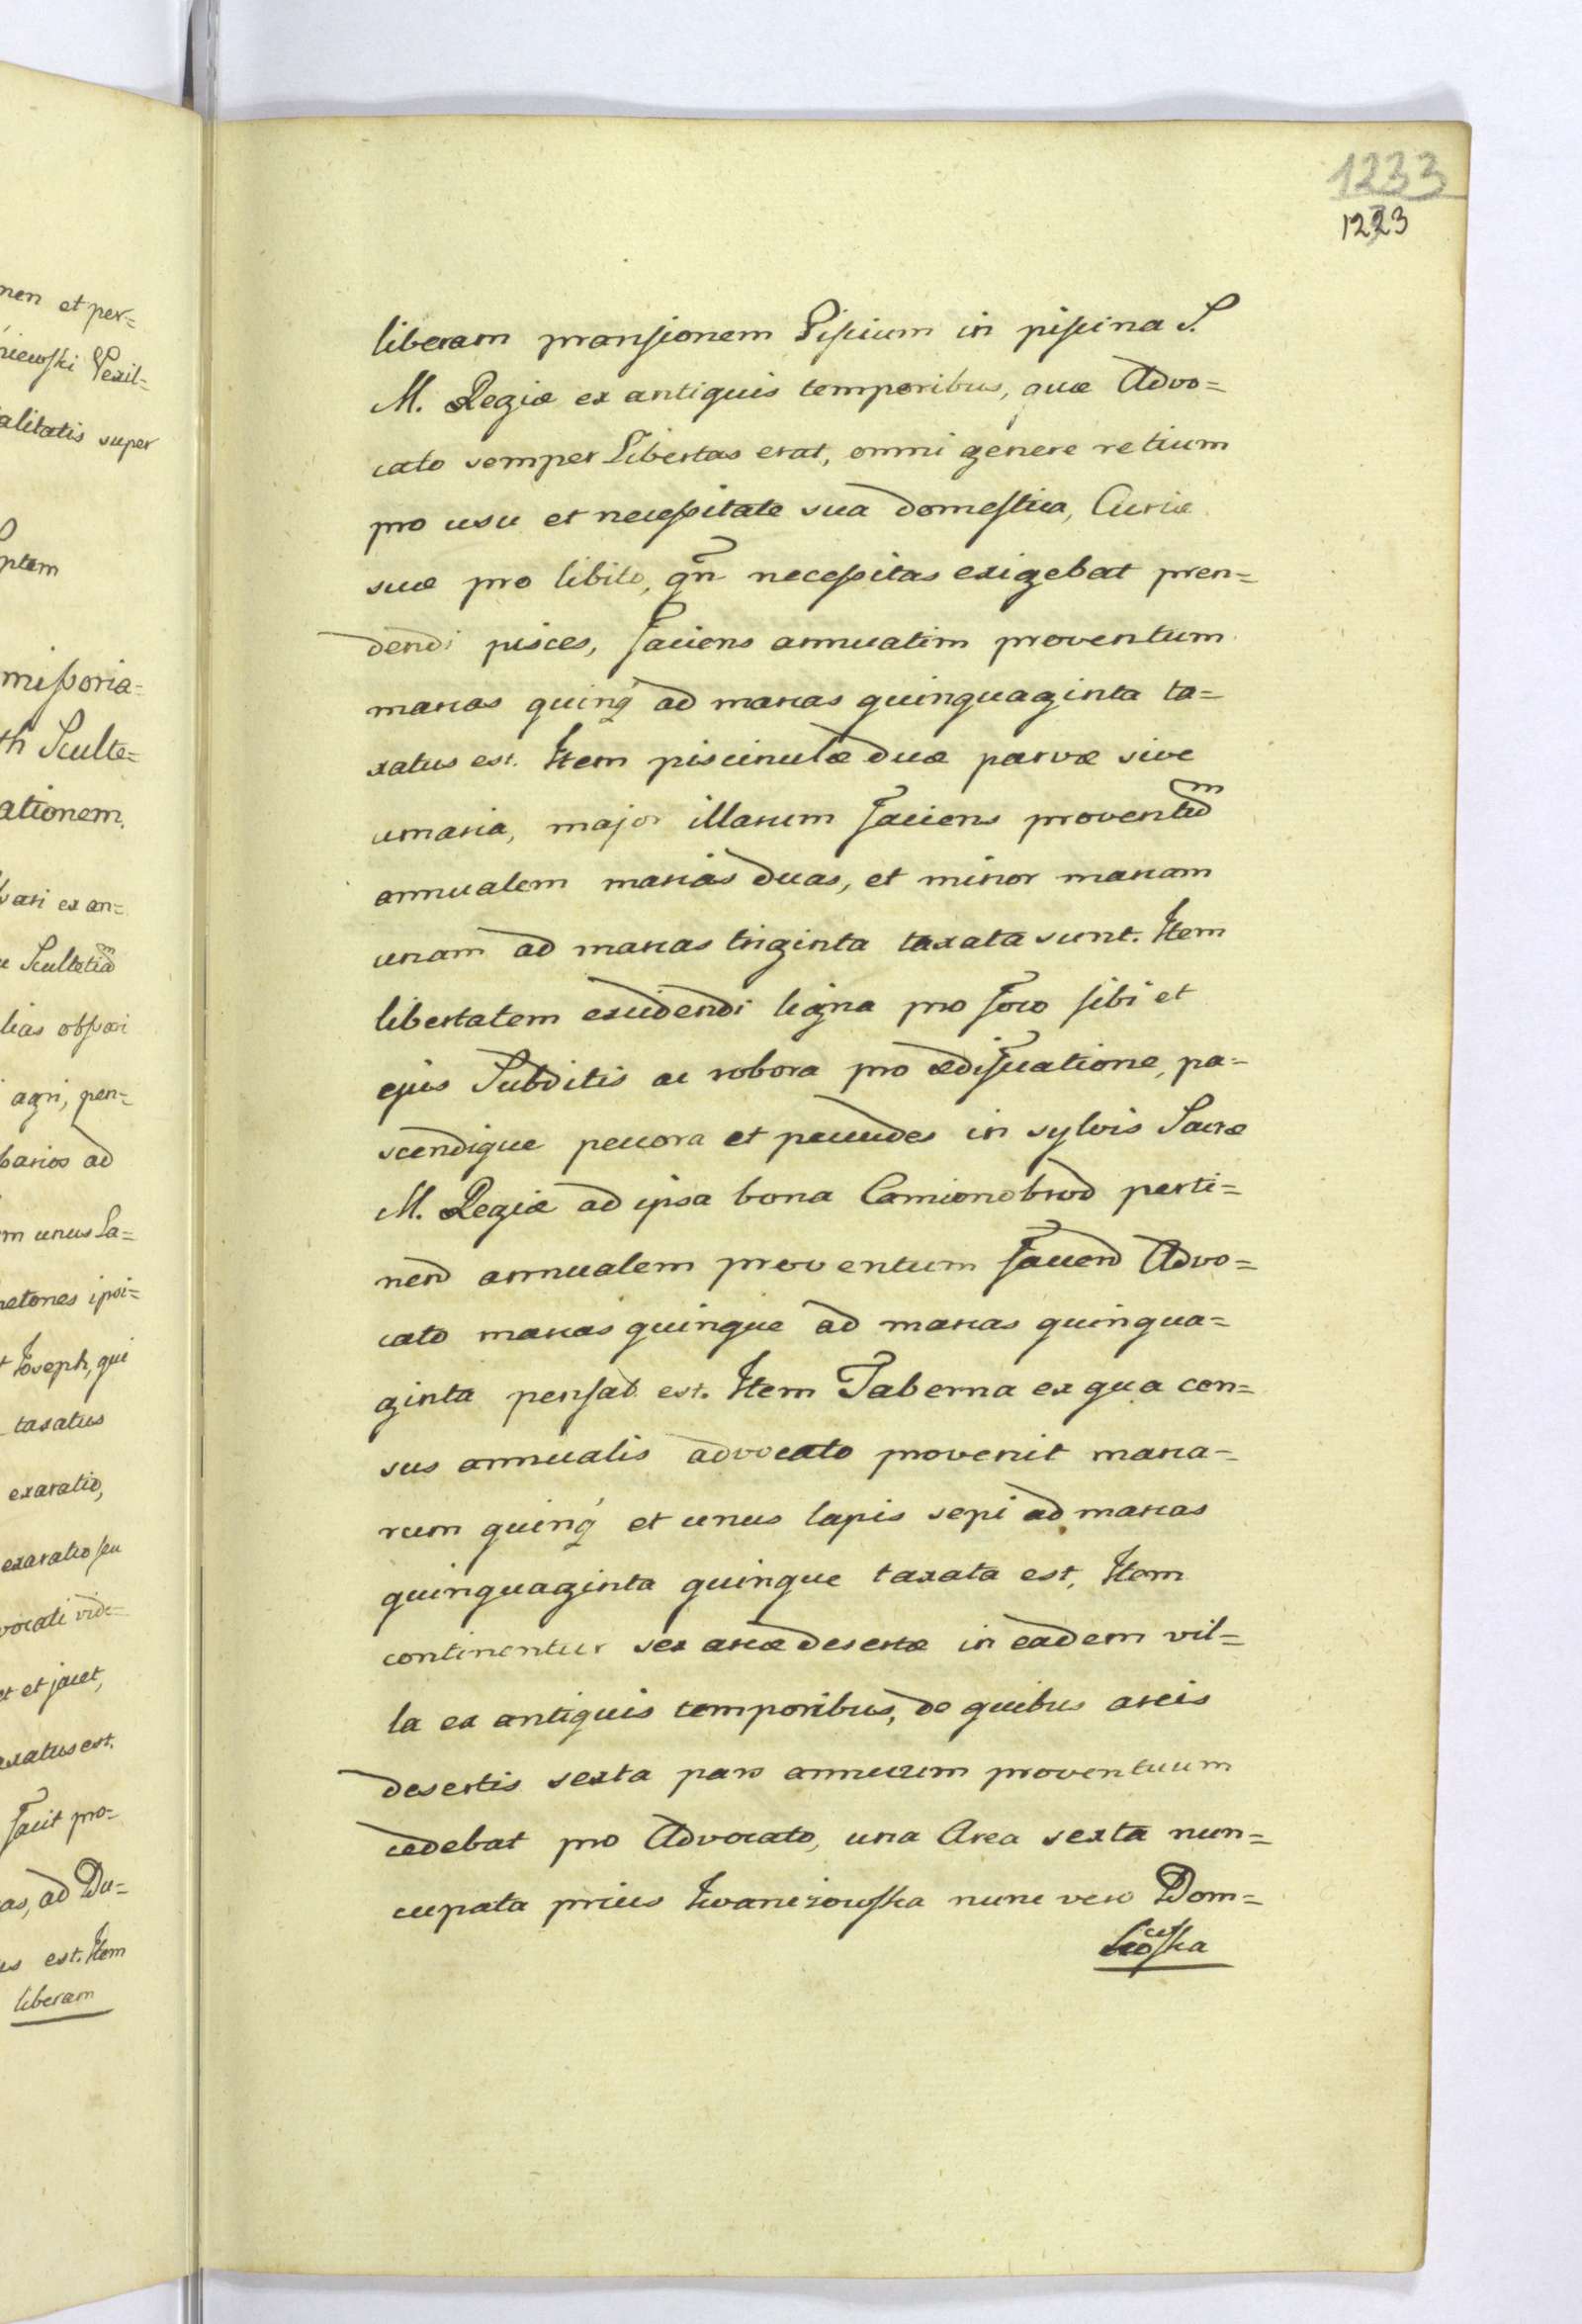 nen et per=
niewski Vexil=
alitatis super
ptem
missoria=
th Sculte=
ationem.
vari ex an=
e Scultetiam
lias obsssori
agri, pen=
barios ad
m unus La=
netones ipsi=
t Joseph, qui
taxatus
exaratio,
exaratio seu
vocati vide=
et et jacet,
axatus est.
facit pro=
as, ad Du=
us est. Item
liberam
1233
1223
liberam pransionem Piscium in piscina S.
M. Regiæ ex antiquis temporibus, quæ Advo=
cato semper Libertas erat, omni genere retium
pro usu et necessitate sua domestica, Curiæ
suæ pro libito, qn̄ necessitas exigebat pren=
dendi pisces, faciens annuatim proventum
marcas quinq́ ad marcas quinquaginta ta=
xatus est. Item piscinulæ duæ parvæ sive
umaria, major illarum faciens proventum
annualem marcas duas, et minor marcam
unam ad marcas triginta taxata sunt. Item
libertatem excidendi ligna pro foco sibi et
ejus Subditis ac robora pro ædificatione, pa=
scendique peccora et pecudes in sylvis Sacræ
M. Regiæ ad ipsa bona Camionobrod perti=
nend annualem proventum faciend Advo=
cato marcas quinque ad marcas quinqua=
ginta pensat. est. Item Taberna ex qua cen=
sus annualis advocato provenit marca=
rum quinq́ et unus lapis sepi ad marcas
quinquaginta quinque taxata est, Item
continentur sex areæ desertæ in eadem vil=
la ex antiquis temporibus, de quibus areis
desertis sexta pars annuum proventuum
cedebat pro Advocato, una Area sexta nun=
cupata prius Iwanizowska nunc vero Dom=